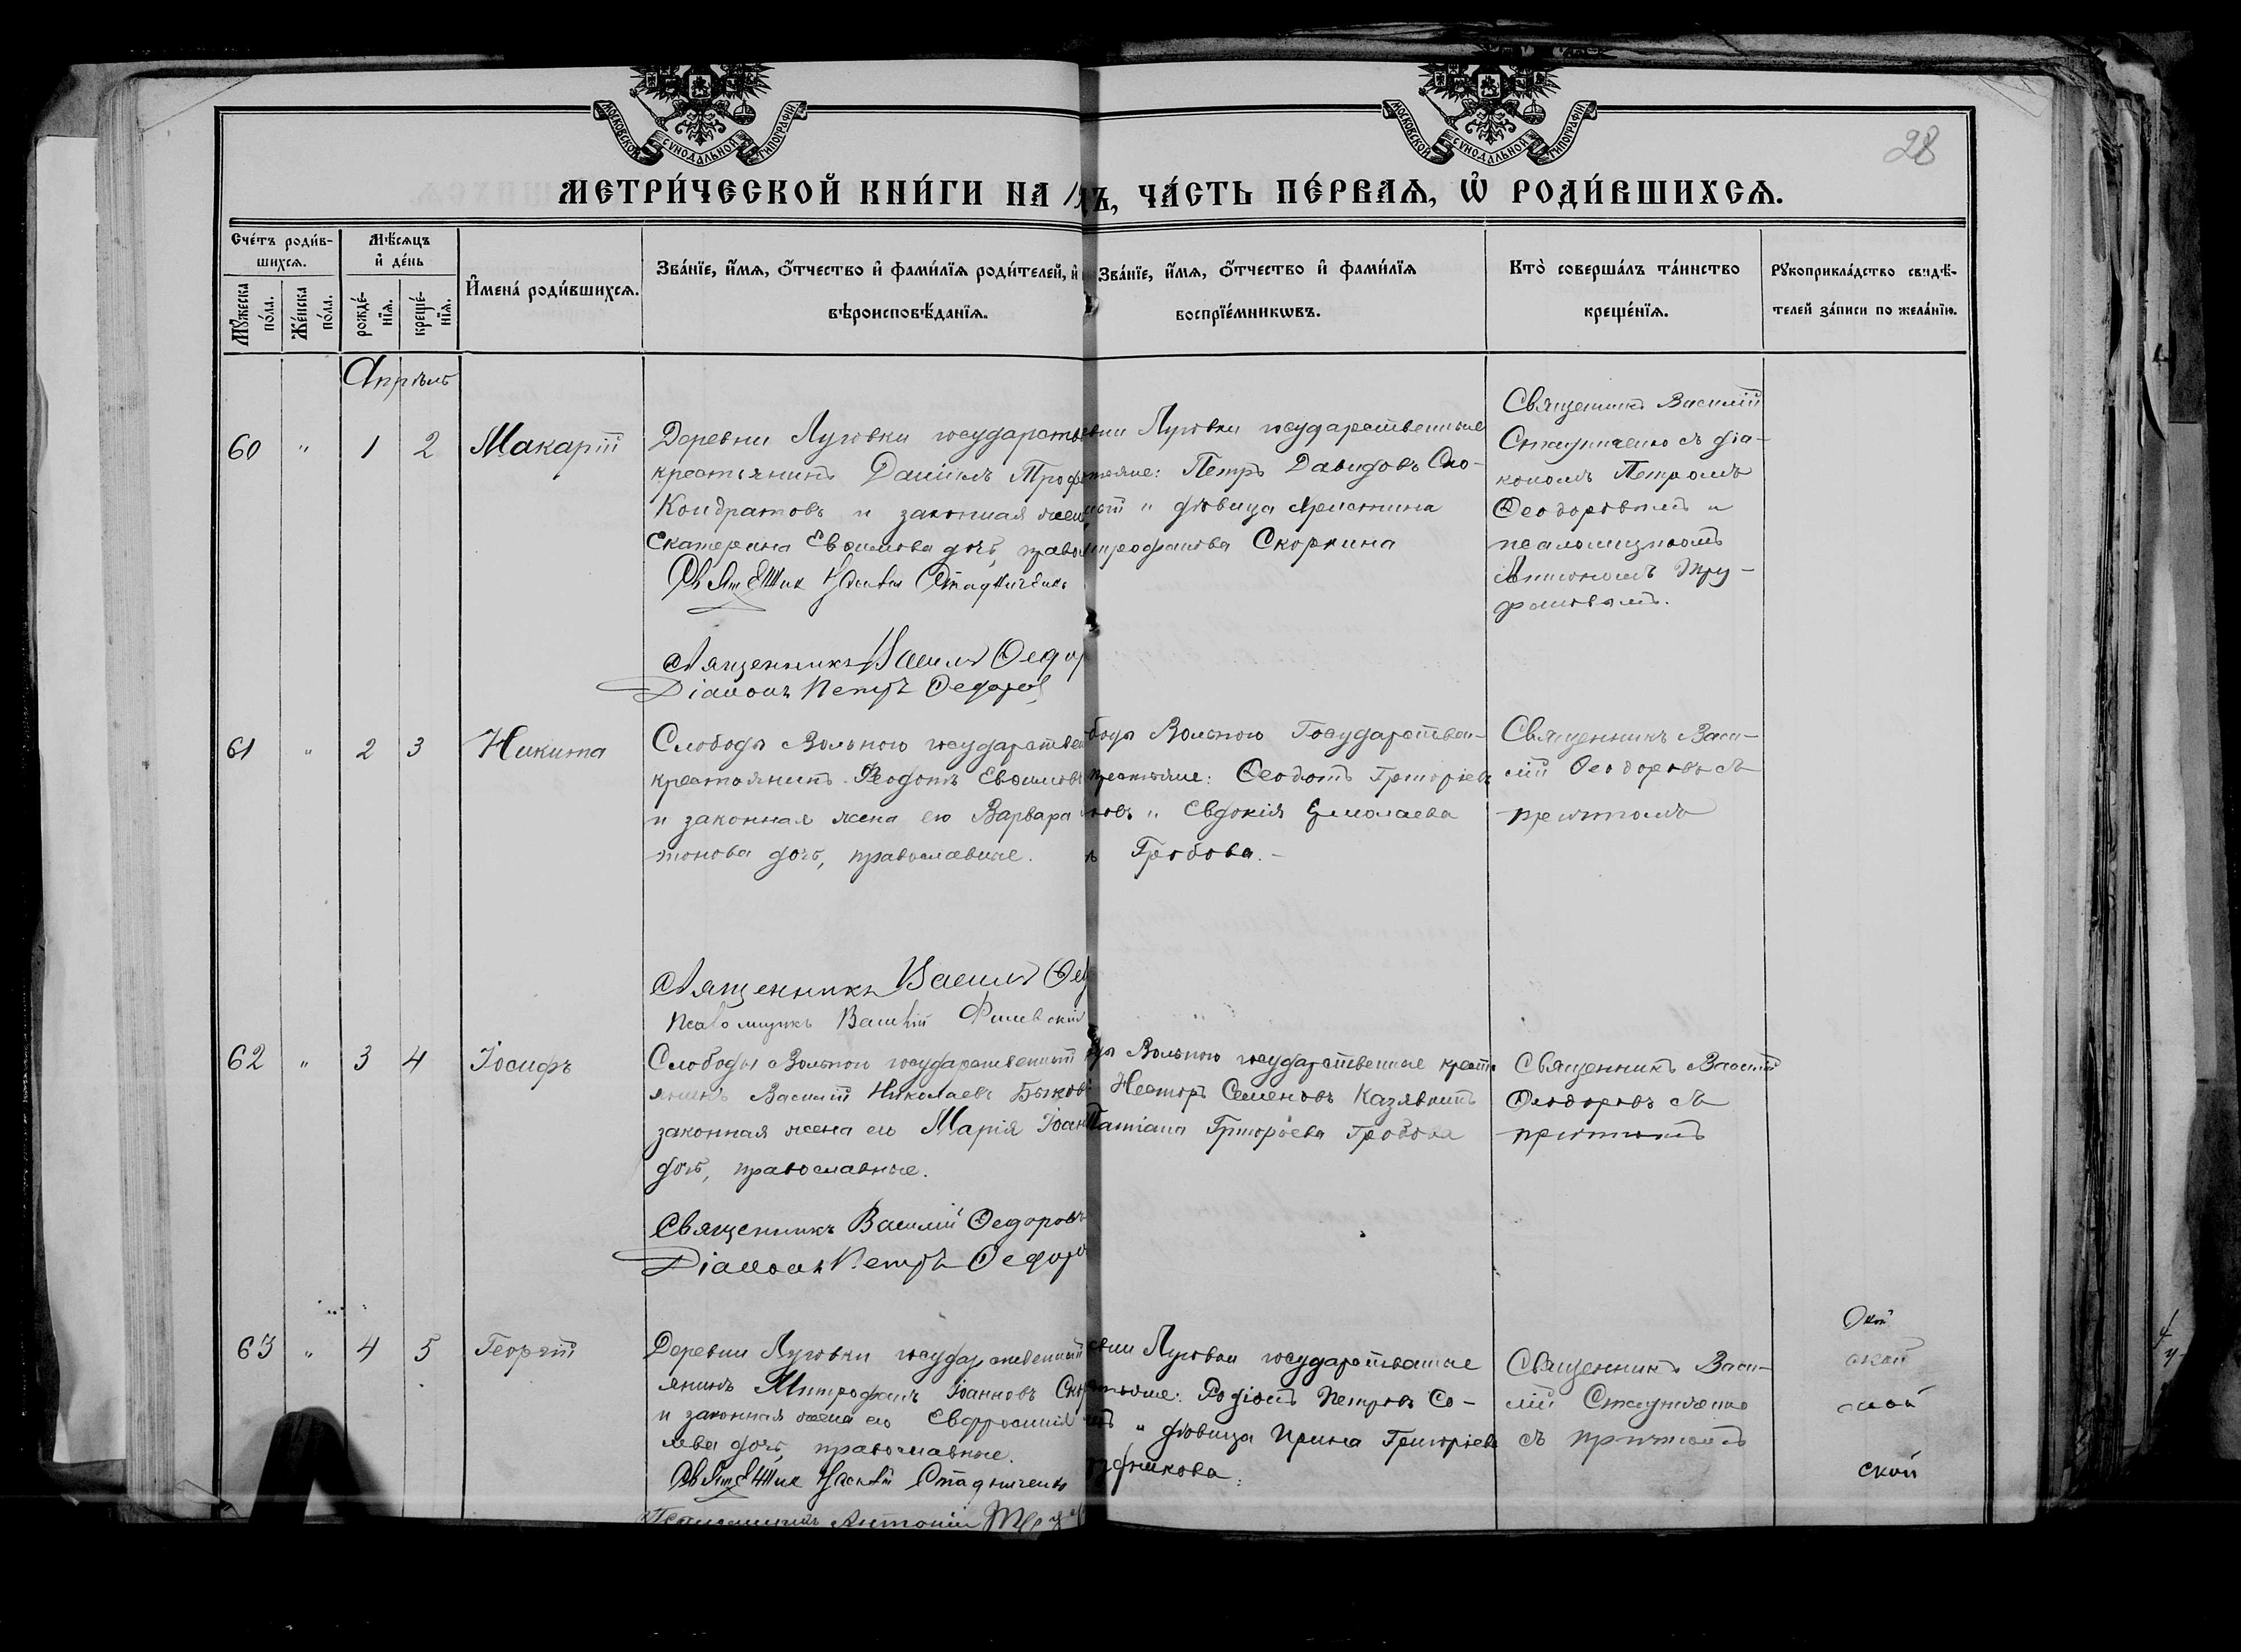 МОСКОВСКОЙ СѴНОДАЛЬНОЙ ТИПОГРАФІИ
МОСКОВСКОЙ СѴНОДАЛЬНОЙ ТИПОГРАФІИ
28
МЕТРИ́ЧЕСКОЙ КНИ́ГИ НА 18 Ъ, ЧА́СТЬ ПЕ́РВАѦ, Ѡ҆ РОДИ́ВШИХСѦ.
Сче́тъ роди́в-
шихсѧ.
Мѣ́сѧцъ
и҆ де́нь
И҆мена̀ роди́вшихсѧ.
Зва́нїе, и҆́мѧ, ѻ҆́тчество и҆ фами́лїѧ роди́телей, и҆
вѣроисповѣ́данїѧ.
Зва́нїе, и҆́мѧ, ѻ҆́тчество и҆ фами́лїѧ
воспрїе́мникѡвъ.
Кто̀ соверша́лъ та́инство
креще́нїѧ.
Рꙋкоприкла́дство свидѣ́-
телей за́писи по жела́нїю.
Мꙋ́жеска
по́ла.
Же́нска
по́ла.
рожде́-
нїѧ.
креще́-
нїѧ.
Апрѣль
60 " 1 2 Макарій
Деревни Луговки государств
крестьянинъ Даніилъ Троф
Кондратовъ и законная жен
Екатерина Евѳимова дочь, право
Священик Василій Стадниченко
Священникъ Василій Ѳедор
Діаконъ Петръ Ѳедоров
вни Луговки государственные
тьяне: Петръ Давидовъ Ско-
" дѣвица Христина
трофанова Скоркина
Священикъ Василій
Стадниченко съ діа-
кономъ Петромъ
Ѳеодоровымъ и
псаломщикомъ
Антономъ Тру-
фановымъ.
61 " 2 3 Никита
Слободы Вольного государствен
крестьянинъ Ѳеодотъ Евѳимовъ
и законная жена его Варвара
тонова дочь, православные.
Священникъ Василій Ѳед
Псаломщикъ Василій
боды Вольного Государствен-
крестьяне: Ѳеодотъ Григорьевъ
новъ " Евдокія Ермолаева
Гробова.
Священникъ Васи-
лій Ѳеодоровъ съ
причтомъ
62 " 3 4 Іосифъ
Слободы Вольного государственный
янинъ Василій Николаевъ Быков
законная жена его Марія Іоан
дочь, православные.
Священникъ Василій Ѳедоровъ
Діаконъ Петръ Ѳедоро
ды Вольного государственные крест
Несторъ Семеновъ Казявкинъ
Татіана Григорьева Гробова
Священникъ Василій
Ѳеодоровъ съ
причтомъ
63 " 4 5 Георгій
Деревни Луговки государственный
янинъ Митрофанъ Іоанновъ Скор
и законная жена его Евфросинія
лева дочь, православные.
Священик Василій Стадниченко
Псаломщикъ Антоній
евни Луговки государственные
стьяне: Родіонъ Петровъ Со-
" дѣвица Ирина Григорьева
дникова.
Священникъ Васи-
лій Стадниченко
съ причтомъ
ской
ской
ской